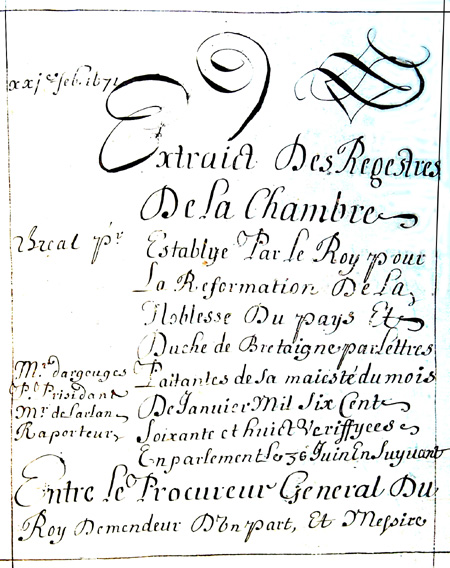 xxj e feb. 1671
Extraict Des Regestres
De la Chambre
Breal pr
Establye Par le Roy pour
La Reformation De la
Noblesse Du pays Et
Duche de Bretaigne par lettres
Mr. dargouges
Pr. Prisidant
Mr. de Larlan
Raporteur
Paitantes de sa maiesté du mois
De Januier Mil Six Cent
Soixante et huict Veriffyees
En parlement le 36 Juin En Suyuant
Entre le Procureur General Du
Roy Demendeur D'vn part, Et Messire